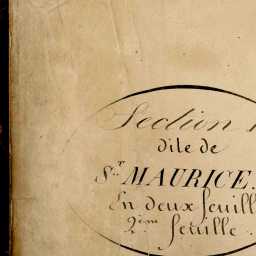 Section
dite de
S.^t MAURICE.
En deux feuill
2^ème feuille.